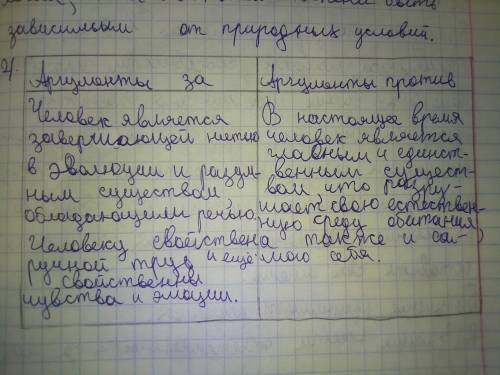 быть
зависимым от природных условий.
4.
Аргументы за
Человек является
завершающей нитью
в эволюции и разум-
ным существом,
обладающими речью.
Человеку свойствен
ручной труд и ещё
свойственны
чувства и эмоции.
Аргументы против
В настоящее время
человек является
главным и единст-
венным сущест-
вом, что разру-
шает свою естествен-
ную среду обитания,
а также и са-
мого себя.